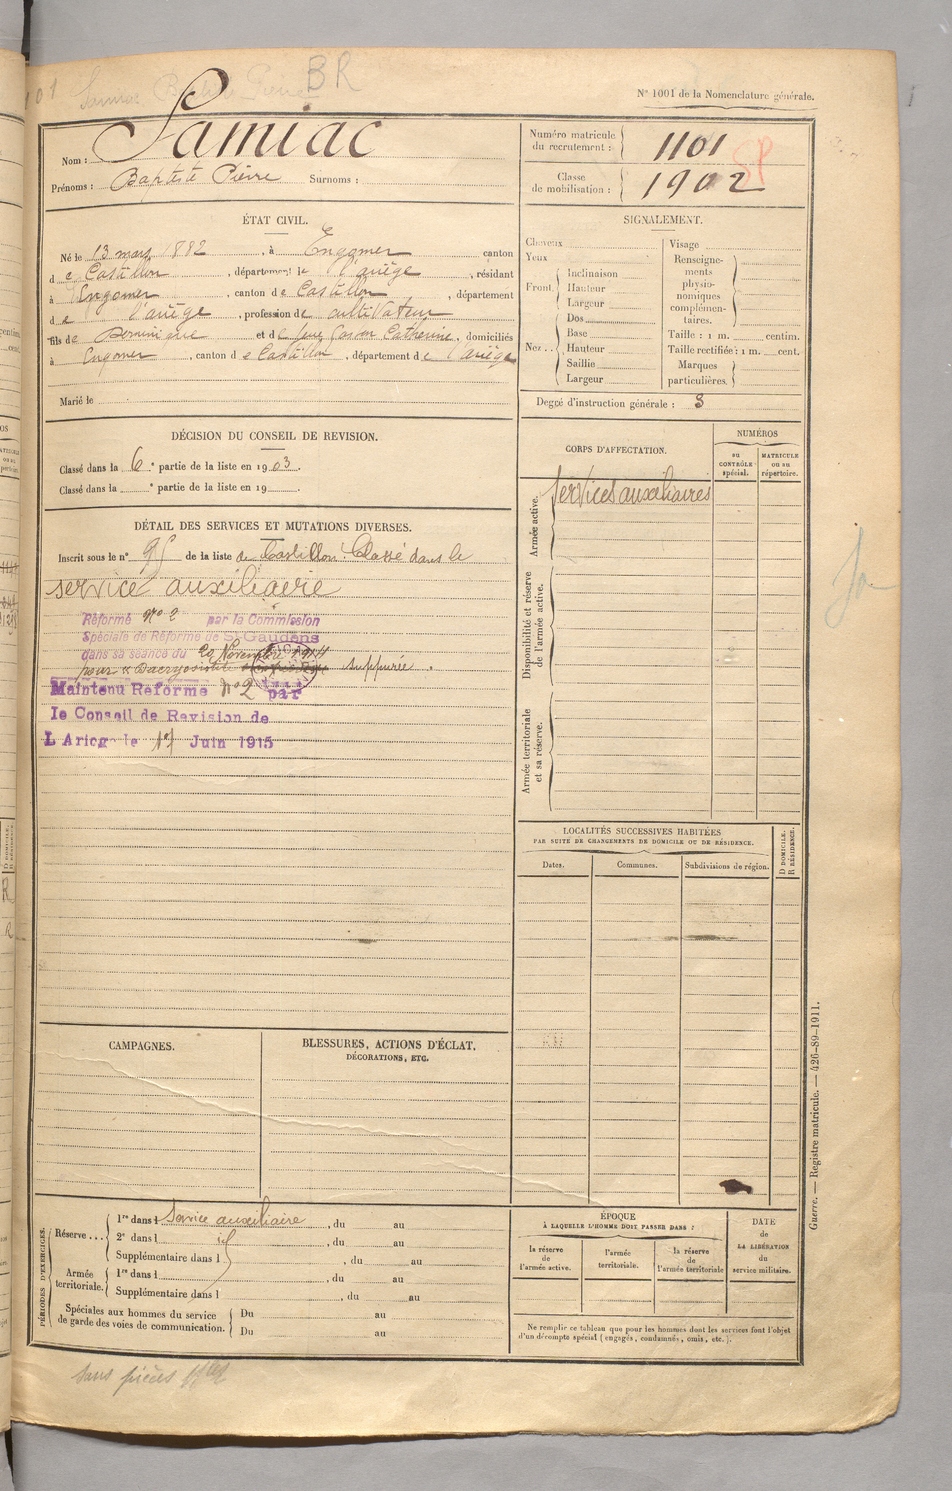 BR
N° 1001 de la Nomenclature générale.
Nom : Samiac
Prénoms : Baptiste Pierre Surnoms :
Numéro matricule du recrutement : 1101
Classe de mobilisation : 1902
SP
ÉTAT CIVIL.
Né le 13 mars 1882, à Engomer canton
de Castillon, département de l'ariège, résidant
à Engomer, canton de Castillon, département
de l'ariège, profession de cultivateur
fils de Dominique et de feue Catherine, domiciliés
à Engomer, canton de Castillon, département de l'ariège
Marié le
SIGNALEMENT.
Cheveux
Yeux
Front.
Inclinaison
Hauteur
Largeur
Nez..
Dos
Base
Hauteur
Saillie
Largeur
Visage
Renseignements physionomiques complémentaires.
Taille : 1 m. centim.
Taille rectifiée : 1 m. cent.
Marques particulières.
Degré d'instruction générale : 3
DÉCISION DU CONSEIL DE REVISION.
Classé dans la 6e partie de la liste en 1903.
Classé dans la e partie de la liste en 19 .
CORPS D'AFFECTATION.
NUMÉROS
au CONTRÔLE spécial.
MATRICULE ou au répertoire.
Armée active.
Services auxiliaires
Disponibilité et réserve de l'armée active.
Armée territoriale et sa réserve.
DÉTAIL DES SERVICES ET MUTATIONS DIVERSES.
Inscrit sous le n° 95 de la liste de Castillon. Classé dans le
service auxiliaire
Réformé n° 2 par la Commission
Spéciale de Réforme de St-Gaudens
dans sa séance du 20 Novembre 1914
pour « Dacryocistite suppurée.
Maintenu Réformé n° 2 par
le Conseil de Revision de
L'Ariège le 17 Juin 1915
LOCALITÉS SUCCESSIVES HABITÉES
PAR SUITE DE CHANGEMENTS DE DOMICILE OU DE RÉSIDENCE.
Dates.
Communes.
Subdivisions de région.
D DOMICILE.
R RÉSIDENCE.
CAMPAGNES.
BLESSURES, ACTIONS D'ÉCLAT,
DÉCORATIONS, ETC.
PÉRIODES D'EXERCICES.
Réserve...
1re dans l Service auxiliaire, du au
2e dans l id, du au
Supplémentaire dans l, du au
Armée territoriale.
1re dans l, du au
Supplémentaire dans l, du au
Spéciales aux hommes du service de garde des voies de communication.
Du au
Du au
ÉPOQUE
À LAQUELLE L'HOMME DOIT PASSER DANS :
la réserve de l'armée active.
l'armée territoriale.
la réserve de l'armée territoriale
DATE de LA LIBÉRATION du service militaire.
Ne remplir ce tableau que pour les hommes dont les services font l'objet
d'un décompte spécial (engagés, condamnés, omis, etc.).
Guerre. — Registre matricule. — 426-89-1911.
sans pièces